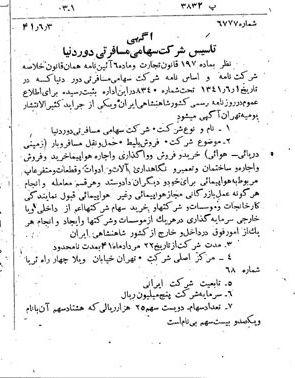 پ ۳۸۳۲
۰۳۰۱
شماره ۶۷۷۷
۴۱/۶/۳
آگهی
تاسیس شرکت سهامی مسافرتی دور دنیا
نظر بماده ۱۹۷ قانون تجارت و ماده ۶ آئین نامه همان قانون خلاصه
شرکت نامه و اساس نامه شرکت سهامی مسافرتی دور دنیا که در
۱۳۴۱/۶/۱ تحت شماره ۸۳۴۰ در این اداره بثبت رسیده برای اطلاع
عموم در روزنامه رسمی کشور شاهنشاهی ایران و یکی از جراید کثیر الانتشار
یومیه تهران آگهی میشود
۱ - نام و نوع شرکت - شرکت سهامی مسافرتی دور دنیا
۲ - موضوع شرکت - فروش بلیط - حمل و نقل مسافر و بار ( زمینی
دریائی - هوائی ) خرید و فروش و اجاره هواپیما خرید و فروش
و اجاره ساختمان و تعمیر و نگاهداری آلات و ادوات و قطعات و متفرعات
مربوط به هواپیمائی برای خود و دیگران دادوستد و هر قسم معامله و انجام
هر گونه عمل بازرگانی مجاز هواپیمائی و غیر هواپیمائی قبول نمایندگی
کارخانجات و موسسات و شرکتها و خرید سهام شرکتها اعم از داخلی و یا
خارجی سرمایه گذاری در هر یک از موسسات و شرکتها و ایجاد و انجام هر
یک از امور فوق در داخل و خارج از کشور شاهنشاهی ایران
۳ - مدت شرکت از تاریخ ۲۲ مرداد ماه ۴۱ بمدت نامحدود
۴ - مرکز اصلی شرکت - تهران خیابان ویلا چهار راه ثریا
شماره ۶۸
۵ - تابعیت شرکت ایرانی
۶ - سرمایه شرکت پنج میلیون ریال
۷ - تعداد سهام - دویست سهم ۲۵ هزار ریالی که هشتاد سهم آن با نام
و یکصد و بیست سهم بی نام است